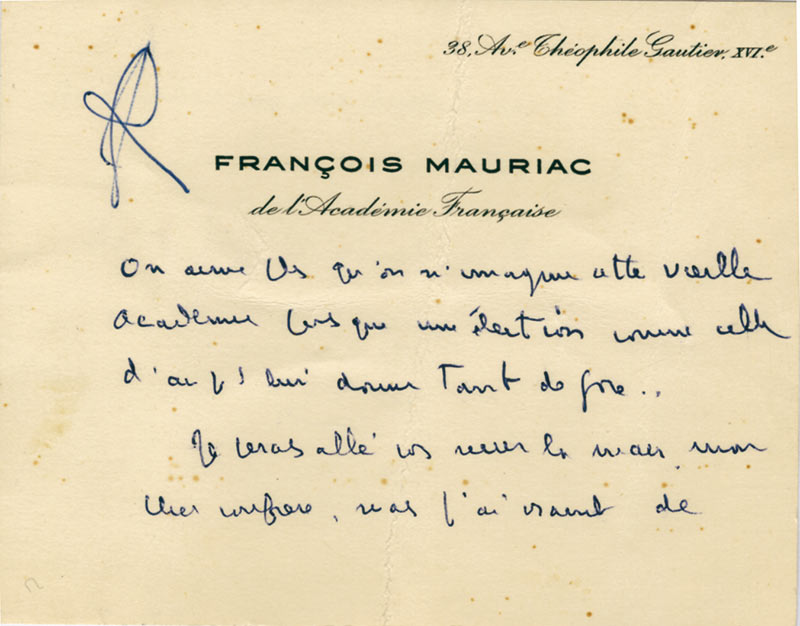 38, Av.e Théophile Gautier, XVI.e
FRANÇOIS MAURIAC
de l'Académie Française
On aime qu'on n'imagine cette vieille
académie lorsque une élection comme celle
d'aujourd'hui donne tant de joie..
Je serais allé vous serrer la main, mon
cher confrère, mais j'ai vraiment de